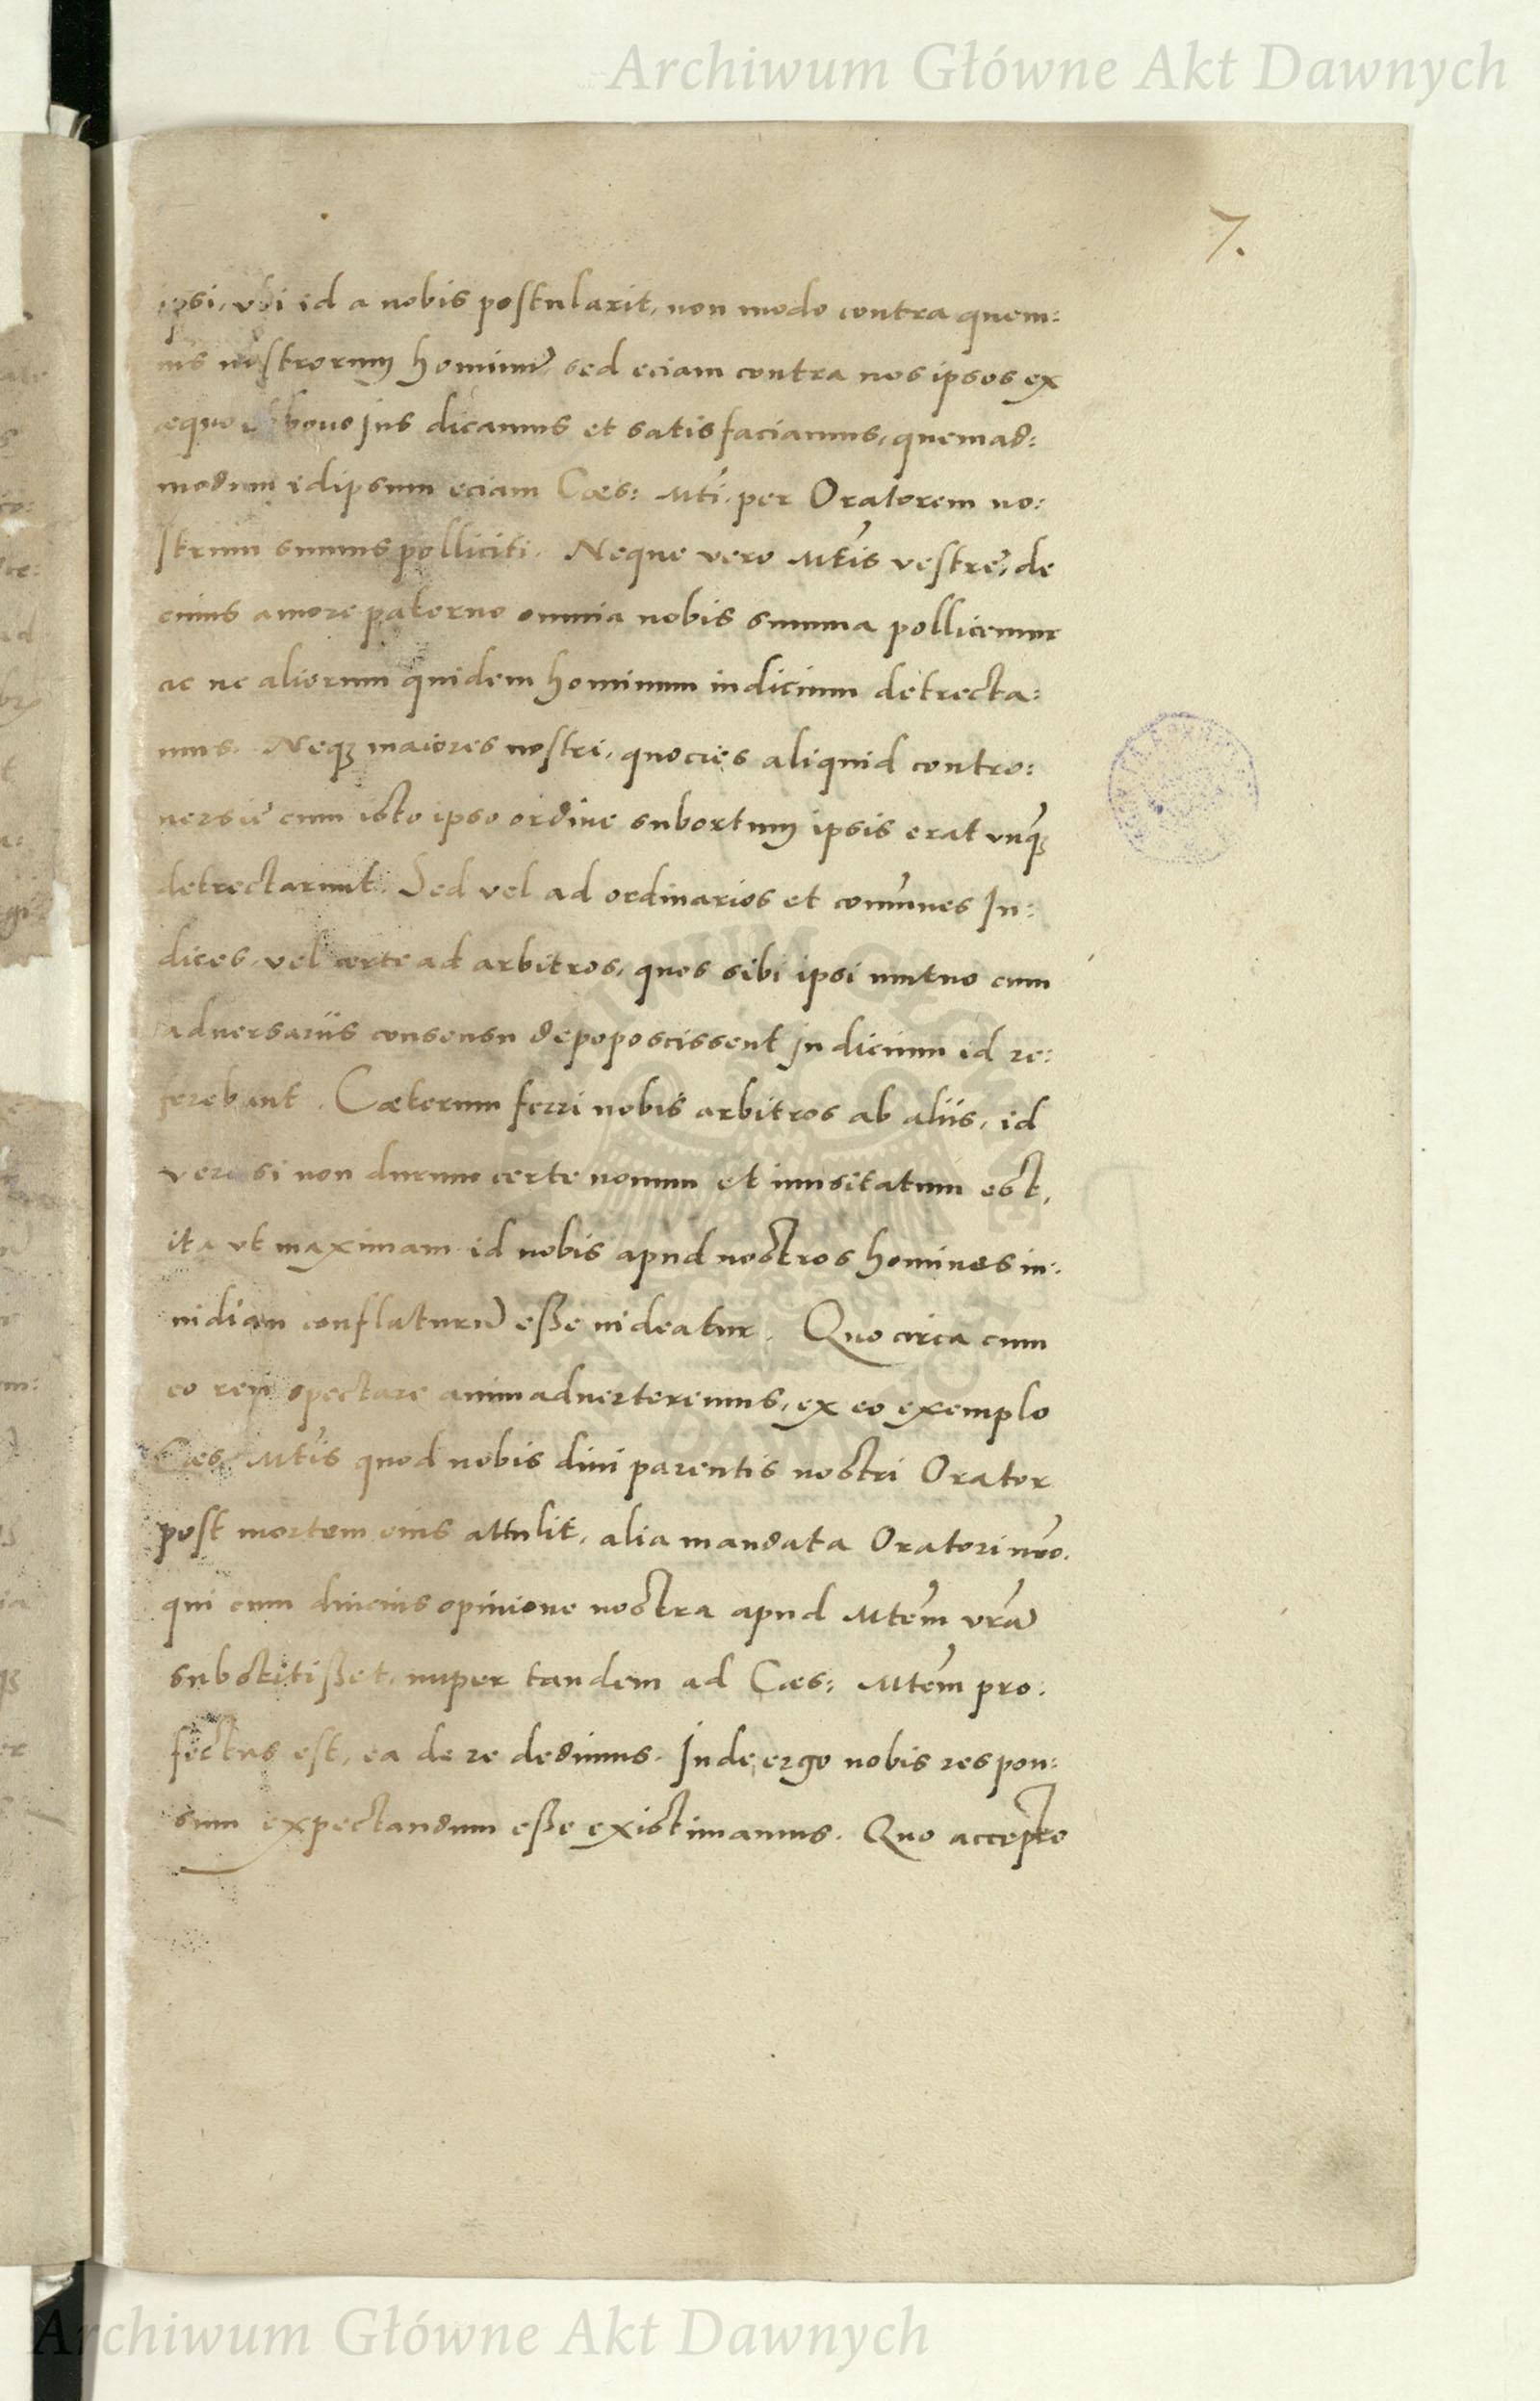 Archiwum Główne Akt Dawnych
7.
ipsi, vbi id a nobis postularit, non modo contra quem:
uis nostrorum hominū, sed eciam contra nos ipsos ex
æquo bono jus dicamus et satisfaciamus, quemad:
modum idipsum eciam Cæs: Mti. per Oratorem no:
strum sumus polliciti. Neque vero Mtis vestrę, de
cuius amore paterno omnia nobis summa pollicemur
ac ne aliorum quidem hominum iudicium detrecta:
mus. Neqꝫ maiores nostri, quocies aliquid contro:
uersię cum isto ipso ordine subortum ipsis erat vnqꝫ
detrectarunt. Sed vel ad ordinarios et comunes Ju:
dices, vel certe ad arbitros, quos sibi ipsi mutuo cum
aduersariis consensu depoposcissent judicium id re:
ferebant. Cæterum ferri nobis arbitros ab aliis, id
vero si non durum certe nouum et inusitatum est,
ita vt maximam id nobis apud nostros homines in:
uidiam conflaturū esse uideatur. Quo circa cum
eo rem spectare animaduerteremus, ex eo exemplo
Cæs. Mtis quod nobis diui parentis nostri Orator
post mortem eius attulit, alia mandata Oratori nro.
qui cum diucius opinione nostra apud Mtem vrā
substitisset, nuper tandem ad Cæs: Mtem pro:
fectus est, ea de re dedimus. Inde ergo nobis respon:
sum expectandum esse existimamus. Quo accepto
Archiwum Główne Akt Dawnych